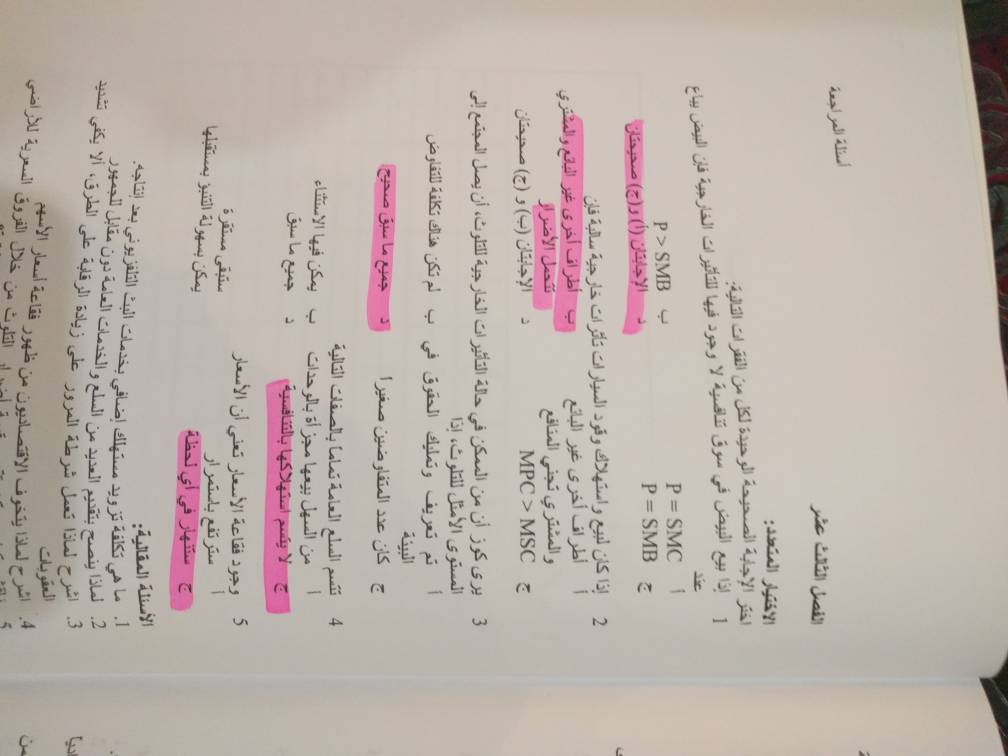 أسئلة المراجعة
الفصل الثالث عشر
الاختيار المتعدد:
اختر الإجابة الصحيحة الوحيدة لكل من الفقرات التالية:
1 إذا بيع البيض في سوق تنافسية لا وجود فيها للتأثيرات الخارجية فإن البيض يباع
عند
أ P = SMC ب P > SMB
ج P = SMB د الإجابتان (أ) و (ج) صحيحتان
2 إذا كان لبيع واستهلاك وقود السيارات تأثيرات خارجية سالبة فإن
أ أطراف أخرى غير البائع ب أطراف أخرى غير البائع والمشتري
والمشتري تجني المنافع تتحمل الأضرار
ج MPC > MSC د الإجابتان (ب) و (ج) صحيحتان
3 يرى كوز أن من الممكن في حالة التأثيرات الخارجية للتلوث، أن يصل المجتمع إلى
المستوى الأمثل للتلوث، إذا
أ تم تعريف وتمليك الحقوق في ب لم تكن هناك تكلفة للتفاوض
البيئة
ج كان عدد المتفاوضين صغيرا د جميع ما سبق صحيح
4 تتسم السلع العامة تماما بالصفات التالية
أ من السهل بيعها مجزأة بالوحدات ب يمكن فيها الاستثناء
ج لا يتسم استهلاكها بالتنافسية د جميع ما سبق
5 وجود فقاعة الأسعار تعني أن الأسعار
أ سترتفع باستمرار ستبقى مستقرة
ج ستنهار في أي لحظة يمكن بسهولة التنبؤ بمستقبلها
الأسئلة المقالية:
1. ما هي تكلفة تزويد مستهلك إضافي بخدمات البث التلفزيوني بعد إنتاجه.
2. لماذا ينصح بتقديم العديد من السلع والخدمات العامة دون مقابل للجمهور.
3. اشرح لماذا تعمل شرطة المرور على زيادة الرقابة على الطرق، ألا يكفي تشديد
العقوبات
4. اشرح لماذا يتخوف الاقتصاديون من ظهور فقاعة أسعار الأسهم
من خلال الفروق السعرية للأراضي